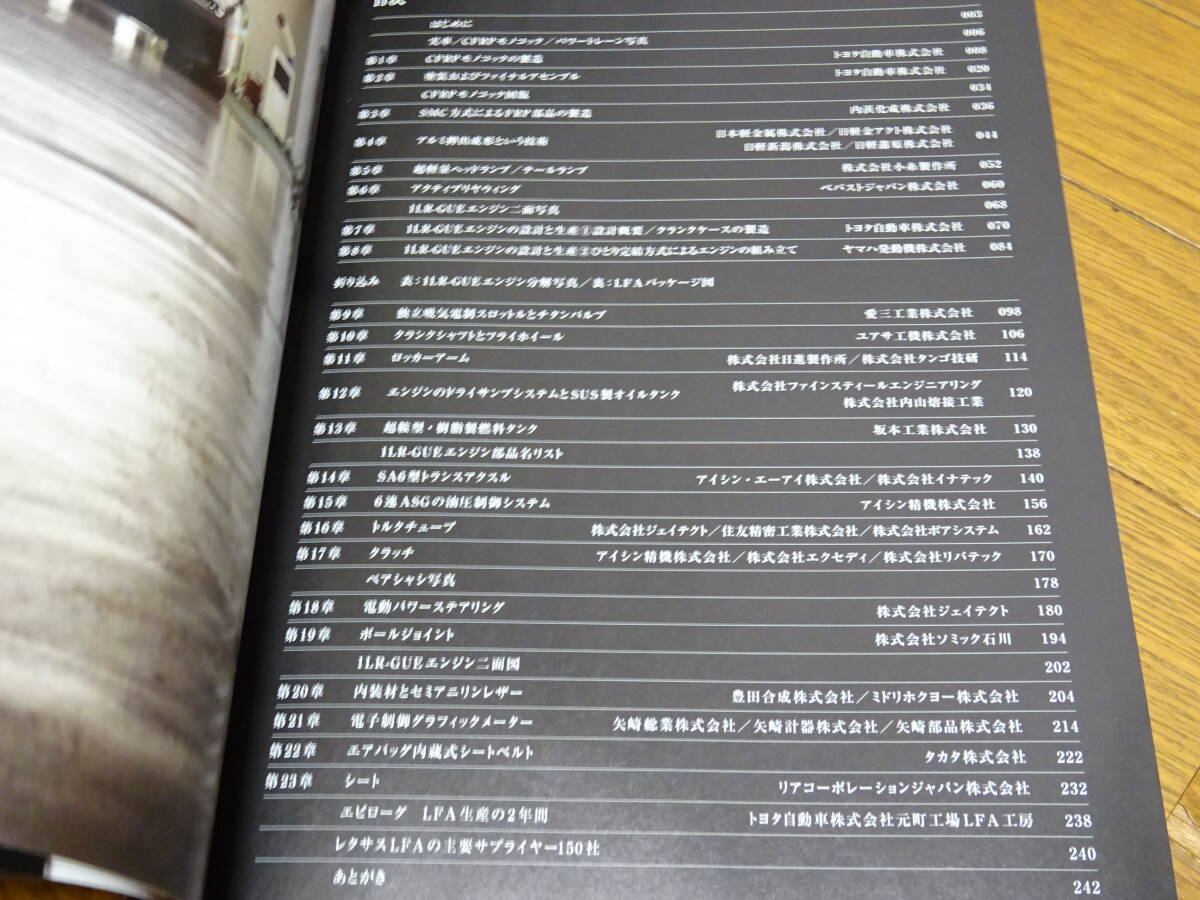 目次
はじめに 002
実車／CFRPモノコック／パワートレーン写真 006
第1章 CFRPモノコックの製造 トヨタ自動車株式会社 008
第2章 塗装およびファイナルアセンブル トヨタ自動車株式会社 020
CFRPモノコック図版 034
第3章 SMC方式によるFRP部品の製造 内浜化成株式会社 036
第4章 アルミ押出成形という技術 日本軽金属株式会社／日軽金アクト株式会社 044
日軽新潟株式会社／日軽蒲原株式会社
第5章 超軽量ヘッドランプ／テールランプ 株式会社小糸製作所 052
第6章 アクティブリヤウィング ベバストジャパン株式会社 060
1LR-GUEエンジン二面写真 068
第7章 1LR-GUEエンジンの設計と生産①設計概要／クランクケースの製造 トヨタ自動車株式会社 070
第8章 1LR-GUEエンジンの設計と生産②ひとり完結方式によるエンジンの組み立て ヤマハ発動機株式会社 084
折り込み 表：1LR-GUEエンジン分解写真／裏：LFAパッケージ図
第9章 独立吸気電制スロットルとチタンバルブ 愛三工業株式会社 098
第10章 クランクシャフトとフライホイール ユアサ工機株式会社 106
第11章 ロッカーアーム 株式会社日進製作所／株式会社タンゴ技研 114
第12章 エンジンのドライサンプシステムとSUS製オイルタンク 株式会社ファインスティールエンジニアリング 120
株式会社内山熔接工業
第13章 超縦型・樹脂製燃料タンク 坂本工業株式会社 130
1LR-GUEエンジン部品名リスト 138
第14章 SA6型トランスアクスル アイシン・エーアイ株式会社／株式会社イナテック 140
第15章 6速ASGの油圧制御システム アイシン精機株式会社 156
第16章 トルクチューブ 株式会社ジェイテクト／住友精密工業株式会社／株式会社ボアシステム 162
第17章 クラッチ アイシン精機株式会社／株式会社エクセディ／株式会社リバテック 170
ベアシャシ写真 178
第18章 電動パワーステアリング 株式会社ジェイテクト 180
第19章 ボールジョイント 株式会社ソミック石川 194
1LR-GUEエンジン二面図 202
第20章 内装材とセミアニリンレザー 豊田合成株式会社／ミドリホクヨー株式会社 204
第21章 電子制御グラフィックメーター 矢崎総業株式会社／矢崎計器株式会社／矢崎部品株式会社 214
第22章 エアバッグ内蔵式シートベルト タカタ株式会社 222
第23章 シート リアコーポレーションジャパン株式会社 232
エピローグ LFA生産の2年間 トヨタ自動車株式会社元町工場LFA工房 238
レクサスLFAの主要サプライヤー150社 240
あとがき 242